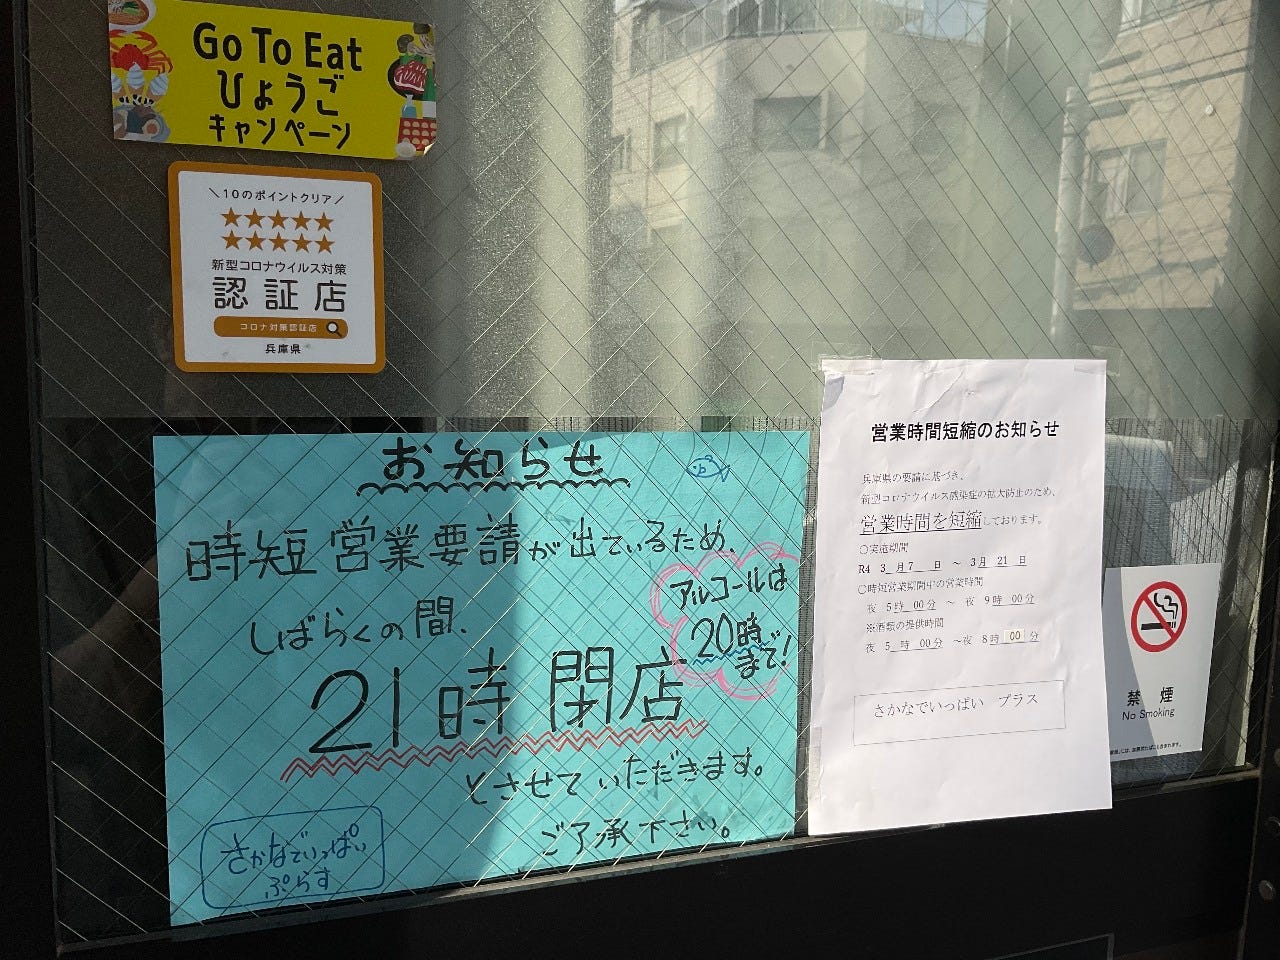 Go To Eat
ひょうご
キャンペーン
＼10のポイントクリア／
★★★★★
★★★★★
新型コロナウイルス対策
認証店
コロナ対策認証店
兵庫県
お知らせ
時短営業要請が出ているため、
しばらくの間、
アルコールは
20時
まで!
21時閉店
とさせていただきます。
ご了承下さい。
さかなでいっぱい
ぷらす
営業時間短縮のお知らせ
兵庫県の要請に基づき、
新型コロナウイルス感染症の拡大防止のため、
営業時間を短縮しております。
○実施期間
R4 3 月7 日 ～ 3月 21 日
○時短営業期間中の営業時間
夜 5時 00分 ～ 夜 9時 00分
※酒類の提供時間
夜 5 時 00分 ～夜 8時 00 分
さかなでいっぱい プラス
禁煙
No Smoking